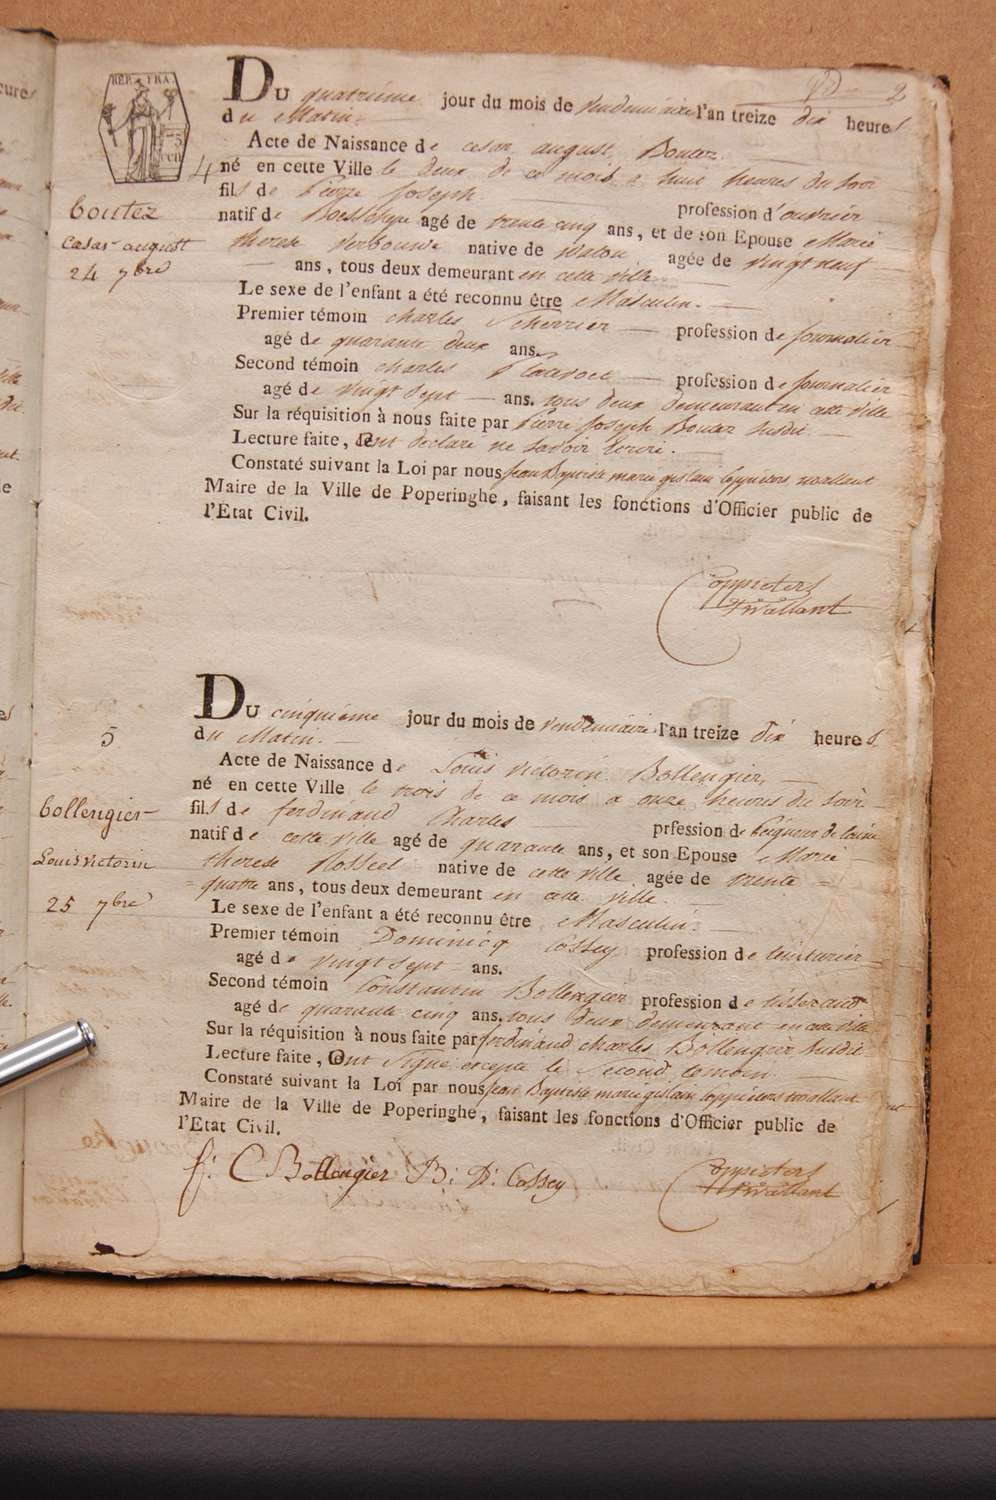 REP. FRA.
2
Du quatrieme jour du mois de vendemiaire l'an treize dix heures
du Matin.
Acte de Naissance de cesar august Boutez
4 né en cette Ville le deux de ce mois a huit heures du soir
fils de Pierre Joseph profession d'ouvrier
boutez
natif de Boesschepe agé de trente cinq ans, et de son Epouse Marie
casar august
therese verbouwe native de Watou agée de vingt neuf
24 7bre
ans, tous deux demeurant en cette ville
Le sexe de l'enfant a été reconnu être Masculin.
Premier témoin charles profession de journalier
agé de quarante deux ans.
Second témoin charles profession de journalier
agé de vingt sept ans. tous deux demeurant en cette ville
Sur la réquisition à nous faite par Pierre Joseph Boutez susdit
Lecture faite, ont declaré ne savoir ecrire.
Constaté suivant la Loi par nous Jean Baptiste marie gislain Coppieters wallant
Maire de la Ville de Poperinghe, faisant les fonctions d'Officier public de
l'Etat Civil.
Coppieters
Du cinquième jour du mois de vendemiaire l'an treize dix heures
5
du Matin.
Acte de Naissance de Louis victorin Bollengier,
né en cette Ville le trois de ce mois a onze heures du soir
bollengier
fils de ferdinand Charles prfession de Peigneur de laine
natif de cette ville agé de quarante ans, et son Epouse Marie
Louis victorin
therese Rosseel native de cette ville agée de trente
25 7bre
quatre ans, tous deux demeurant en cette ville.
Le sexe de l'enfant a été reconnu être Masculin.
Premier témoin Dominicq Cossey profession de teinturier
agé de vingt sept ans.
Second témoin Constantin Bollengier profession de tisserand
agé de quarante cinq ans. tous deux demeurant en cette ville
Sur la réquisition à nous faite par ferdinand charles Bollengier, susdit
Lecture faite, Ont signé excepté le second temoin.
Constaté suivant la Loi par nous Jean Baptiste marie gislain Coppieters wallant
Maire de la Ville de Poperinghe, faisant les fonctions d'Officier public de
l'Etat Civil.
f: C Bollengier B: D: Cossey
Coppieters